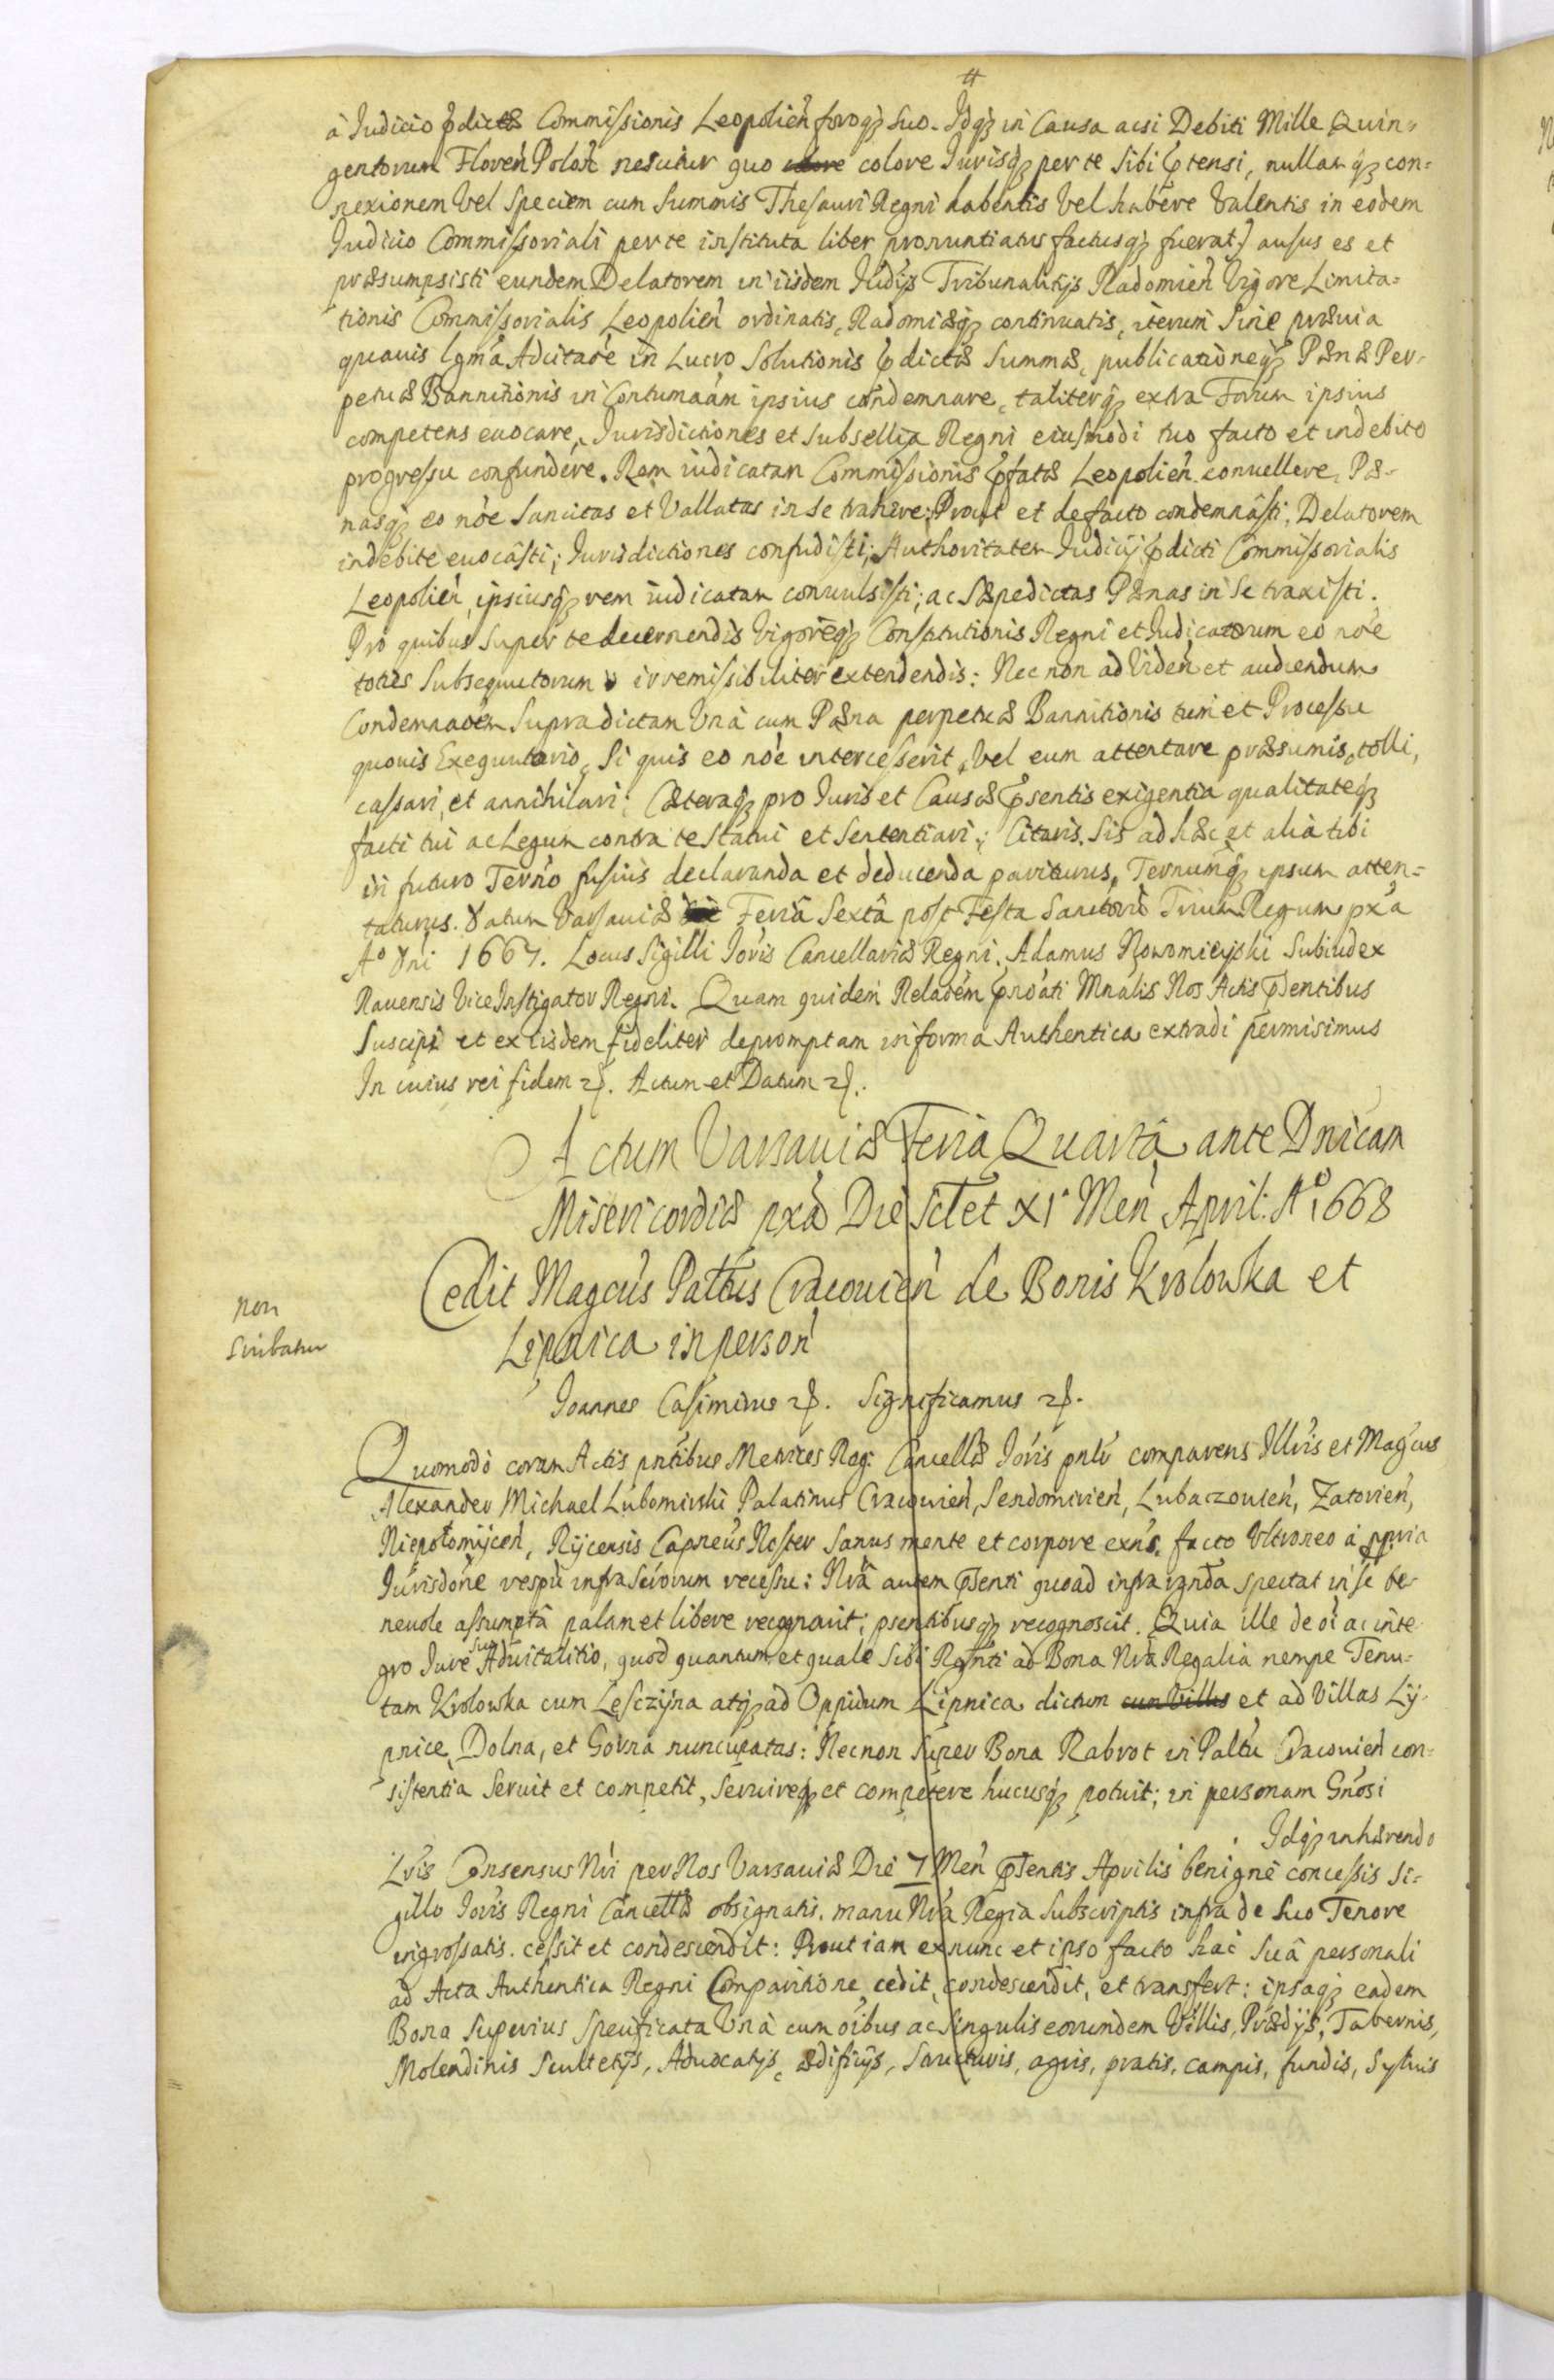 à Judicio p̃dictæ Commissionis Leopolien̄ foroq́ꝫ suo. Idq́ꝫ in Causa acsi Debiti Mille Quin-
gentorum Floren̄ Polon̄ nescitur quo colore colore Jurisq́ꝫ per te sibi p̃tensi, nullam q́ꝫ con=
nexionem vel speciem cum summis Thesauri Regni habentis vel habere valentis in eodem
Judicio Commissoriali per te instituta liber pronuntiatus factusq́ꝫ fuerat) ausus es et
præsumpsisti eundem Delatorem in iisdem Judijs Tribunalitijs Radomien̄ vigore Limita=
tionis Commissorialis Leopolien̄ ordinatis, Radomiæq́ꝫ continuatis, iterum sine prævia
quavis lg̃ma Adcitaõe in Lucro solutionis p̃dictæ summæ, publicationeq́ꝫ Pænæ Per-
petuæ Bannitionis in Contumaciam ipsius condemnare, taliterq́ꝫ extra Forum ipsius
competens evocare, Jurisdictiones et subsellia Regni eiusmodi tuo facto et indebito
progressu confundere. Rem iudicatam Commissionis p̃fatæ Leopolien̄ convellere, Pæ-
nasq́ꝫ eo nõe sancitas et vallatas in se trahere; Prout et de facto condemnâsti, Delatorem
indebite evocâsti; Jurisdictiones confudisti; Authoritatem Judicij p̃dicti Commissorialis
Leopolien̄, ipsiusq́ꝫ rem iudicatam convulsisti; ac sæpedictas Pænas in se traxisti.
Pro quibus super te decernendis vigoreq́ꝫ Constitutionis Regni et Judicatorum eo nõe
toties subsequutorum irremissibiliter extendendis: Nec non ad viden̄ et audiendum
Condemnaõem supradictam unà cum Pæna perpetuæ Bannitionis tum et Processu
quovis Exequutorio, si quis eo nõe intercesserit, vel eum attentare præsumis, tolli,
cassari, et annihilari; Cæteraq́ꝫ pro Juris et Causæ p̃sentis exigentia qualitateq́ꝫ
facti tui ac Legum contra te statui et sententiari; Citaris. Sis ad hæc et alia tibi
in futuro Terño fusius declaranda et deducenda pariturus, Ternumq́ꝫ ipsum atten=
taturus. Datum Varsaviæ Feriâ Sextâ post Festa Sanctorũ Trium Regum px̃a
Aº Dñi 1667. Locus Sigilli Joris Cancellariæ Regni. Adamus Nowomieyski Subiudex
Ravensis ViceInstigator Regni. Quam quidem Relaõem p̃noãti Mñalis Nos Actis p̃sentibus
suscipi et ex iisdem fideliter depromptam in forma Authentica extradi permisimus
In cuius rei fidem ꝛꝭ. Actum et Datum ꝛꝭ.
Actum Varsaviæ Feriâ Quartâ ante Dnĩcam
Misericordiæ px̃a Die sc̃t et XIª Men̄ April: Aº 1668
Cedit Magc̃us Palt̃us Cracovien̄ de Bonis Krolowka et
Lipnica in person̄
non
scribatur
Joannes Casimirus ꝛꝭ. Significamus ꝛꝭ.
Quomodo coram Actis pnt̃ibus Metrices Reg: Cancellæ Joris pnl̃r comparens Illr̃is et Magc̃us
Alexander Michael Lubomirski Palatinus Cracovien̄, Sendomirien̄, Lubaczovien̄, Zatorien̄,
Niepołomijcen̄, Rijcensis Capneũs Noster sanus mente et corpore exñs, facto ultroneo à ppria
Jurisdõne respũ infrascr̃orum recessu: Nr̃â autem p̃senti quoad infra ignd̃a spectat in se be-
nevole assumptâ palam et libere recognovit; p̃sentibusq́ꝫ recognoscit. Quia ille de oĩ ac inte-
gro Jure suo Advitalitio, quod quantum et quale sibi Rgñti ad Bona Nr̃a Regalia nempe Tenu=
tam Krolowka cum Lesczijna atq́ꝫ ad Oppidum Lipnica dictum cum Villis et ad Villas Lij-
pnice Dolna, et Gorna nuncupatas: Necnon super Bona Rabrot in Paltũ Cracovien̄ con=
sistentia servit et competit, servireq́ꝫ et competere hucusq́ꝫ potuit; in personam Gñosi
Idq́ꝫ inhærendo
Lr̃is Consensus Nr̃i per Nos Varsaviæ Die 7 Men̄ p̃sentis Aprilis benignè concessis si=
gillo Joris Regni Cancellæ obsignatis, manu Nr̃a Regia subscriptis infra de suo Tenore
ingrossatis. cessit et condescendit: Prout iam ex nunc et ipso facto hac suâ personali
ad Acta Authentica Regni Comparitione cedit, condescendit, et transfert: ipsaq́ꝫ eadem
Bona superius specificata unà cum oĩbus ac singulis eorundem Villis, Prædijs, Tabernis,
Molendinis Scultetijs, Advocatijs, ædificijs, structuris, agris, pratis, campis, fundis, sylvis